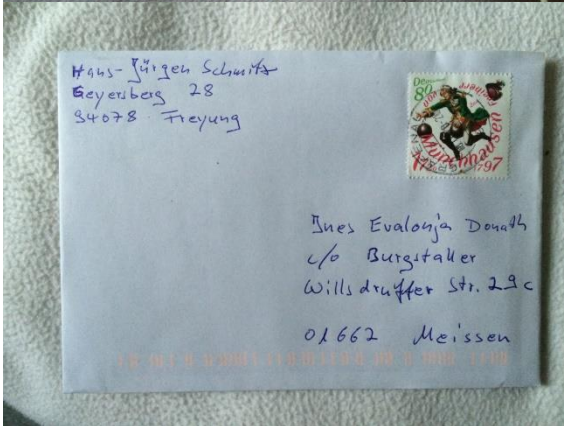 Hans-Jürgen Schmitz
Geyersberg 28
94078 Freyung
80
Freiherr von
Münchhausen
1797
Ines Evalonja Donath
c/o Burgstaller
Willsdruffer Str. 29c
01662 Meissen